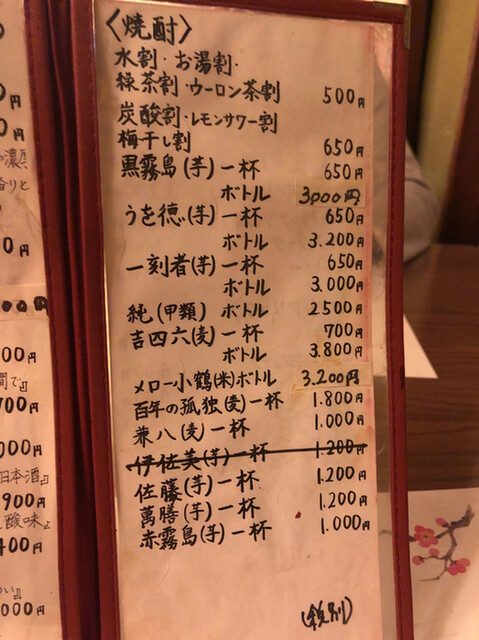 〈焼酎〉
水割・お湯割・
緑茶割・ウーロン茶割 500円
炭酸割・レモンサワー割
梅干し割 650円
黒霧島(芋)一杯 650円
ボトル 3000円
うき徳(芋)一杯 650円
ボトル 3.200円
一刻者(芋)一杯 650円
ボトル 3.000円
純(甲類)ボトル 2500円
吉四六(麦)一杯 700円
ボトル 3.800円
メロー小鶴(米)ボトル 3.200円
百年の孤独(麦)一杯 1.800円
兼八(麦)一杯 1.000円
伊佐美(芋)一杯 1.200円
佐藤(芋)一杯 1.200円
萬膳(芋)一杯 1.200円
赤霧島(芋)一杯 1.000円
(税別)